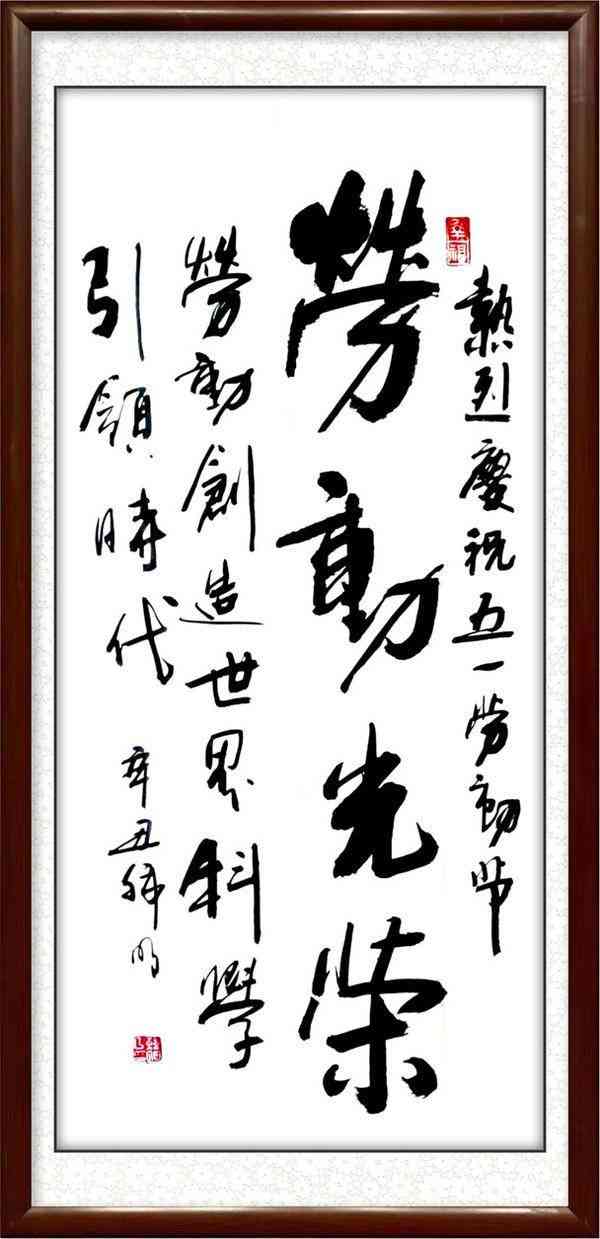 熱烈慶祝五一勞動節
勞動光榮
勞動創造世界科學
引領時代
辛丑